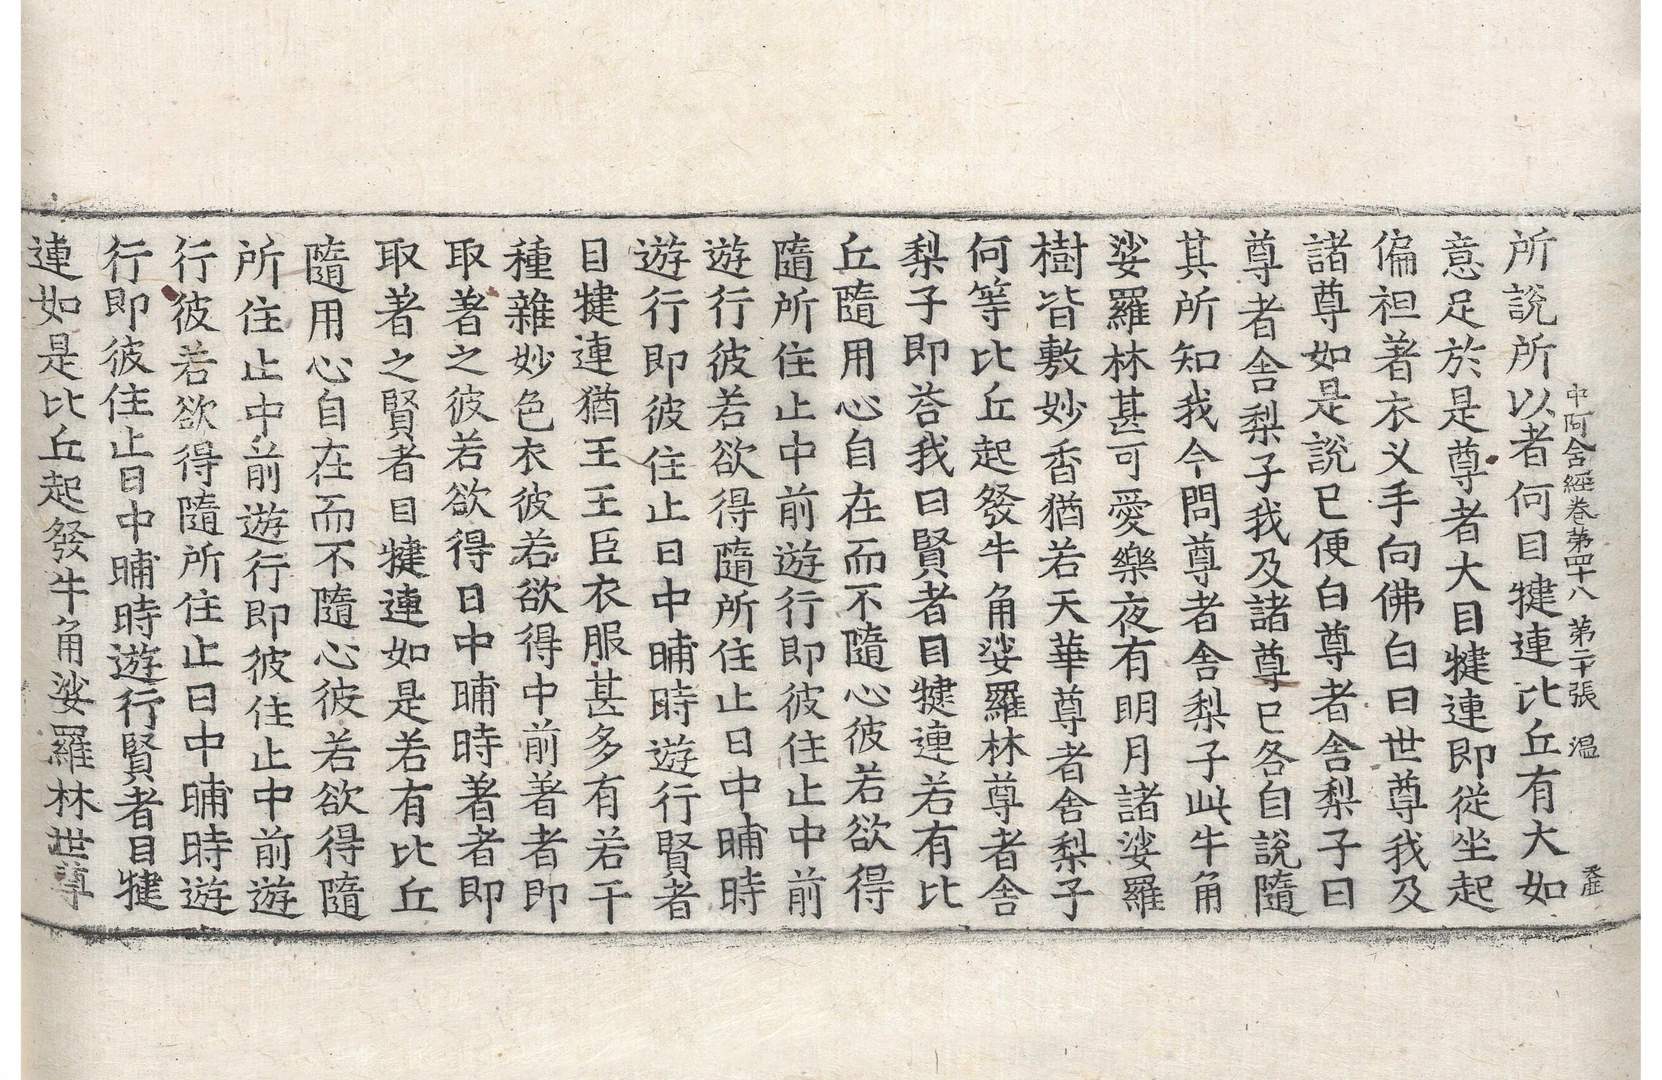 中阿含經卷第四十八 第二十張 溫
所說所以者何目犍連比丘有大如
意足於是尊者大目犍連即從坐起
偏袒著衣叉手向佛白曰世尊我及
諸尊如是說已便白尊者舍梨子曰
尊者舍梨子我及諸尊已各自說隨
其所知我今問尊者舍梨子此牛角
娑羅林甚可愛樂夜有明月諸娑羅
樹皆敷妙香猶若天華尊者舍梨子
何等比丘起發牛角娑羅林尊者舍
梨子即荅我曰賢者目犍連若有比
丘隨用心自在而不隨心彼若欲得
隨所住止中前遊行即彼住止中前
遊行彼若欲得隨所住止日中晡時
遊行即彼住止日中晡時遊行賢者
目犍連猶王王臣衣服甚多有若干
種雜妙色衣彼若欲得中前著者即
取著之彼若欲得日中晡時著者即
取著之賢者目犍連如是若有比丘
隨用心自在而不隨心彼若欲得隨
所住止中前遊行即彼住止中前遊
行彼若欲得隨所住止日中晡時遊
行即彼住止日中晡時遊行賢者目犍
連如是比丘起發牛角娑羅林世尊